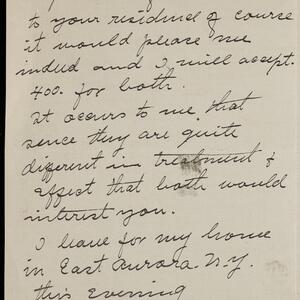 to your residence of course
it would please me
indeed and I will accept.
400. for both.
It occurs to me that
sence they are quite
different in treatment &
effect that both would
interest you.
I leave for my home
in East Aurora N.Y.
this evening